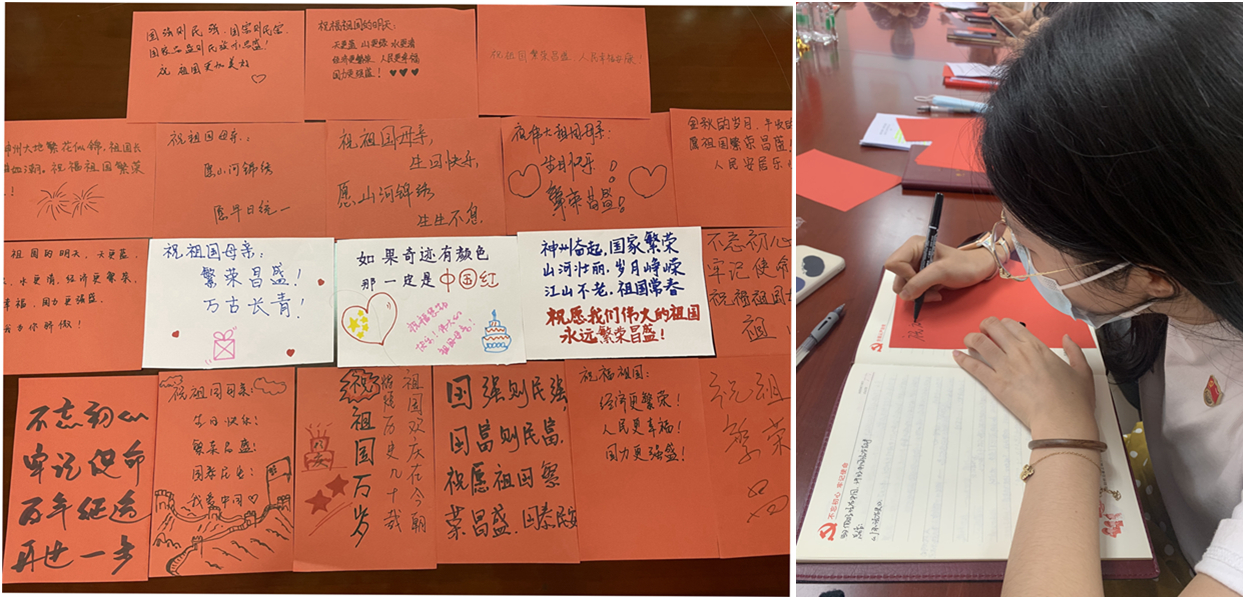 国强则民强,国富则民富,
祝 祖国更加美好
祝福祖国的明天:
天更蓝 山更绿 水更清
经济更繁荣、人民更幸福
国力更强盛!
祝祖国繁荣昌盛,人民幸福安康!
神州大地繁花似锦,祖国长
祝福祖国繁荣
祝祖国母亲:
愿山河锦绣
愿早日统一
祝祖国母亲,
生日快乐,
愿山河锦绣
生生不息.
祝伟大祖国母亲:
生日快乐!
繁荣昌盛!
金秋的岁月,丰收的
愿祖国繁荣昌盛!
人民安居乐
祖国的明天,天更蓝
水更清,经济更繁荣,
幸福,国力更强盛.
为你骄傲!
祝祖国母亲:
繁荣昌盛!
万古长青!
如果奇迹有颜色
那一定是中国红
神州奋起,国家繁荣
山河壮丽,岁月峥嵘
江山不老,祖国常春
祝愿我们伟大的祖国
永远繁荣昌盛!
不忘初心
牢记使命
祝福祖国
祖
不忘初心
牢记使命
万年征途
再进一步
祝祖国母亲
生日快乐!
繁荣昌盛!
国泰民安!
我爱中国
祝祖国万岁
祖国欢庆在今朝
国强则民强,
国富则民富.
祝愿祖国繁
荣昌盛.国泰民安
祝福祖国:
经济更繁荣!
人民更幸福!
国力更强盛!
祝祖
繁荣
昌
不忘初心 牢记使命